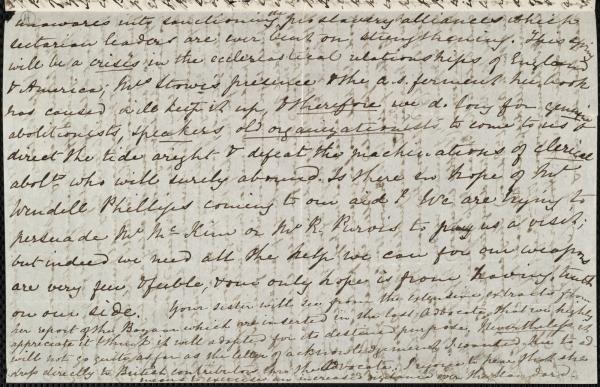 unawares into sanctioning the pro slavery alliances which
sectarian leaders are ever bent on strengthening. This spring
will be a crisis in the ecclesiastical relationships of England
& America; Mrs Stowe's presence & the a.s. ferment her book
has caused will keep it up, & therefore we do long for genuine
abolitionists, speakers old organizationists to come to us &
direct the tide aright & defeat the machinations of clerical
abolts who will surely abound. Is there no hope of Mr
Wendell Phillips coming to our aid? We are trying to
persuade Mr Mc Kim or Mr R. Purvis to pay us a visit;
but indeed we need all the help we can for our weapons
are very few & feeble, & our only hope is from having truth
on our side. Your sister will see from the extensive extracts from
her report of the Bazaar which are inserted in the last Advocate, that we highly
appreciate it & think it well adapted for its destined purpose, Nevertheless it
will not go quite as far as the letter of acknowledgement I counted, due to ad
direct to British contributors, thro' the Advocate. I rejoice to hear that she
means to exercise an increased vigilance over the standard.